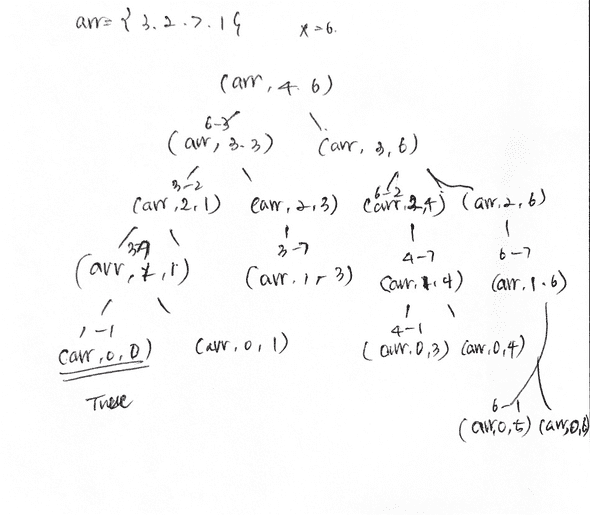 arr= { 3. 2. 7. 1 {    x=6.
(arr, 4. 6)
6-3
(arr, 3. 3)    (arr, 3, 6)
3-2    6-2
(arr, 2, 1)    (arr, 2, 3)    (arr, 2, 4)    (arr, 2, 6)
3-7    4-7    6-7
(arr, 1, 1)    (arr, 1, 3)    (arr, 1, 4)    (arr, 1. 6)
1-1    4-1
(arr, 0, 0)    (arr, 0, 1)    (arr, 0, 3)    (arr, 0, 4)
True
6-1
(arr, 0, 5)    (arr, 0, 6)